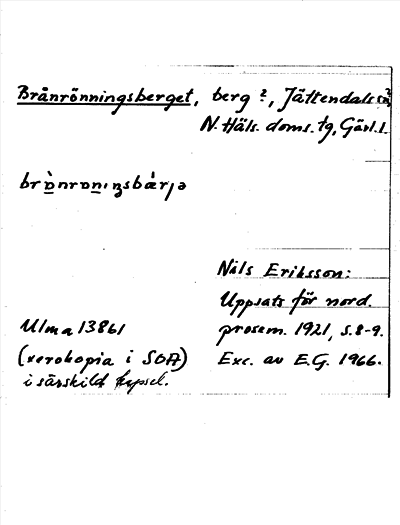 Brånrönningsberget, berg ?, Jättendals sn ?,
N. Häls. doms. tg, Gävl. l.
Nils Eriksson:
Uppsats för nord.
prosem. 1921, s. 8-9.
Exc. av E.G. 1966.
Ulma 13861
(xerokopia i SOA)
i särskild kapsel.